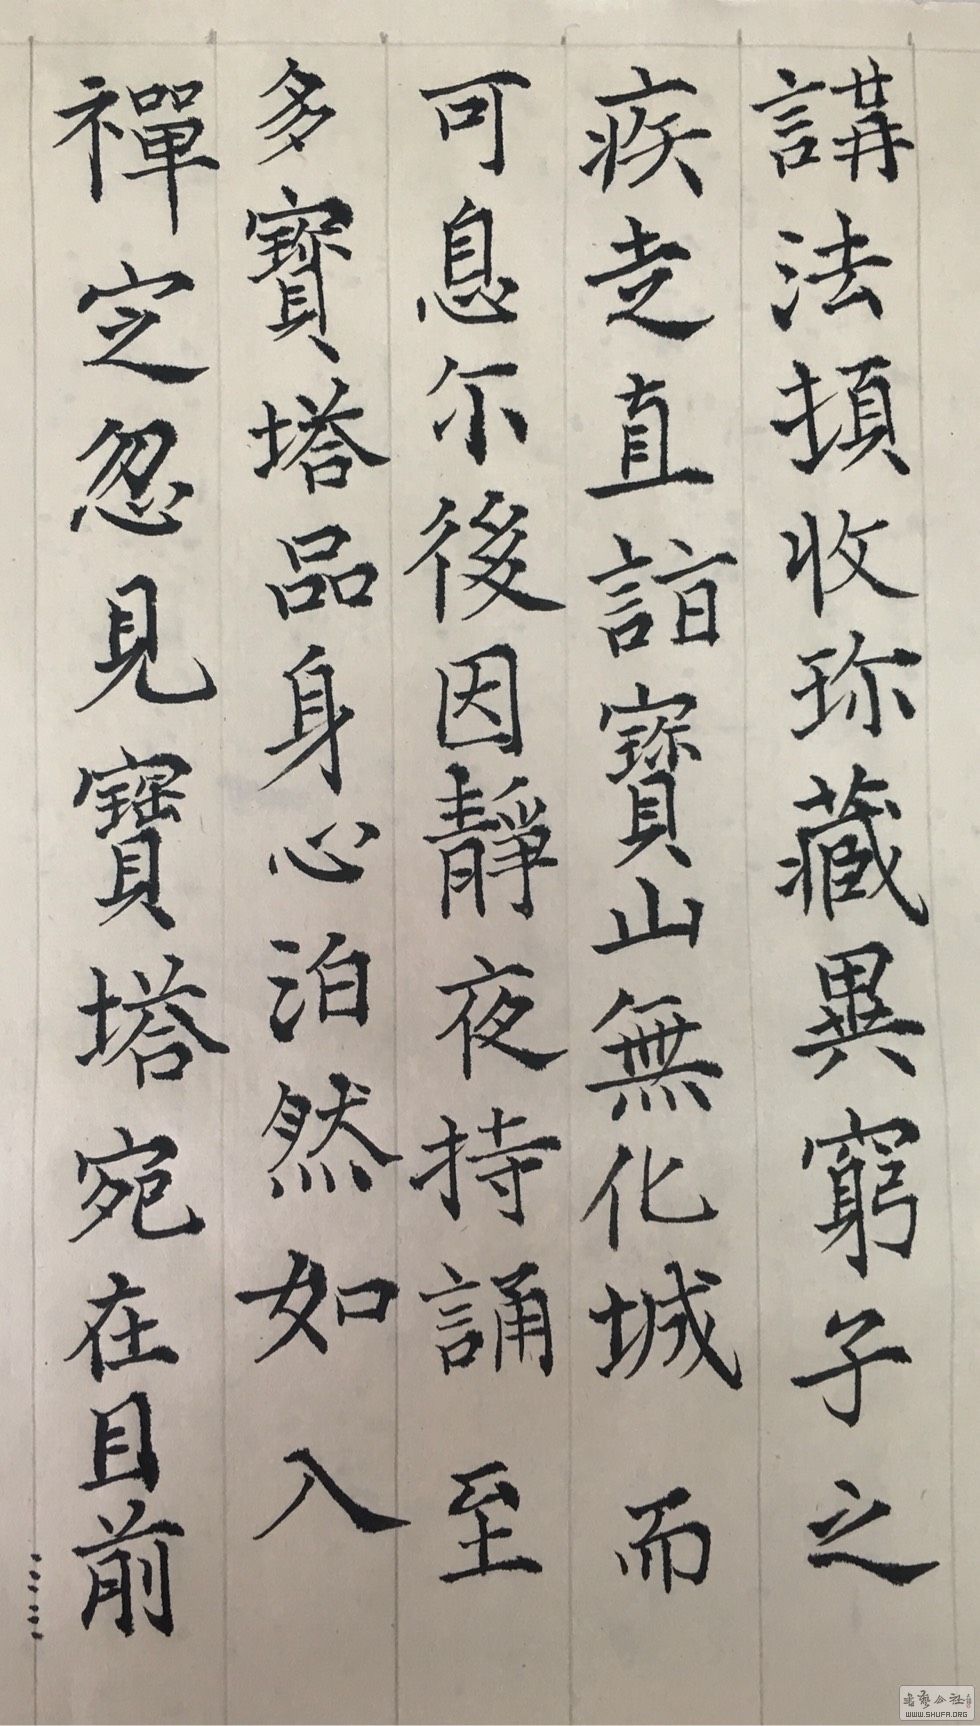 講法頓收珎藏異窮子之
疾走直詣寳山無化城而
可息尓後因靜夜持誦至
多寳塔品身心泊然如入
禪定忽見寶塔宛在目前
書藝公社
WWW.SHUFA.ORG